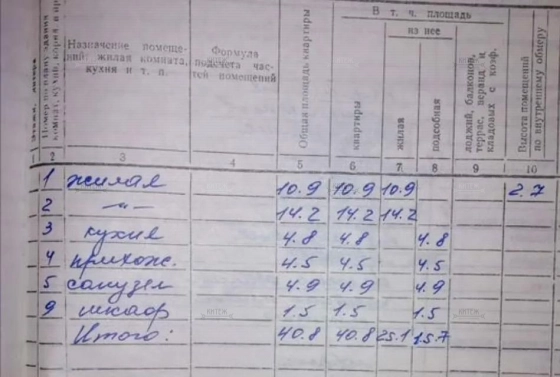 В т. ч. площадь
из нее
Назначение помеще-
ний: жилая комната,
кухня и т. п.
Формула
подсчета час-
тей помещений
Общая площадь квартиры
квартиры
жилая
подсобная
лоджий, балконов,
террас, веранд и
кладовых с коэф.
Высота помещений
по внутреннему обмеру
2 3 4 5 6 7 8 9 10
1 жилая 10.9 10.9 10.9 2.7
2 —"— 14.2 14.2 14.2
3 кухня 4.8 4.8 4.8
4 прихож. 4.5 4.5 4.5
5 санузел 4.9 4.9 4.9
9 шкаф 1.5 1.5 1.5
Итого: 40.8 40.8 25.1 15.7